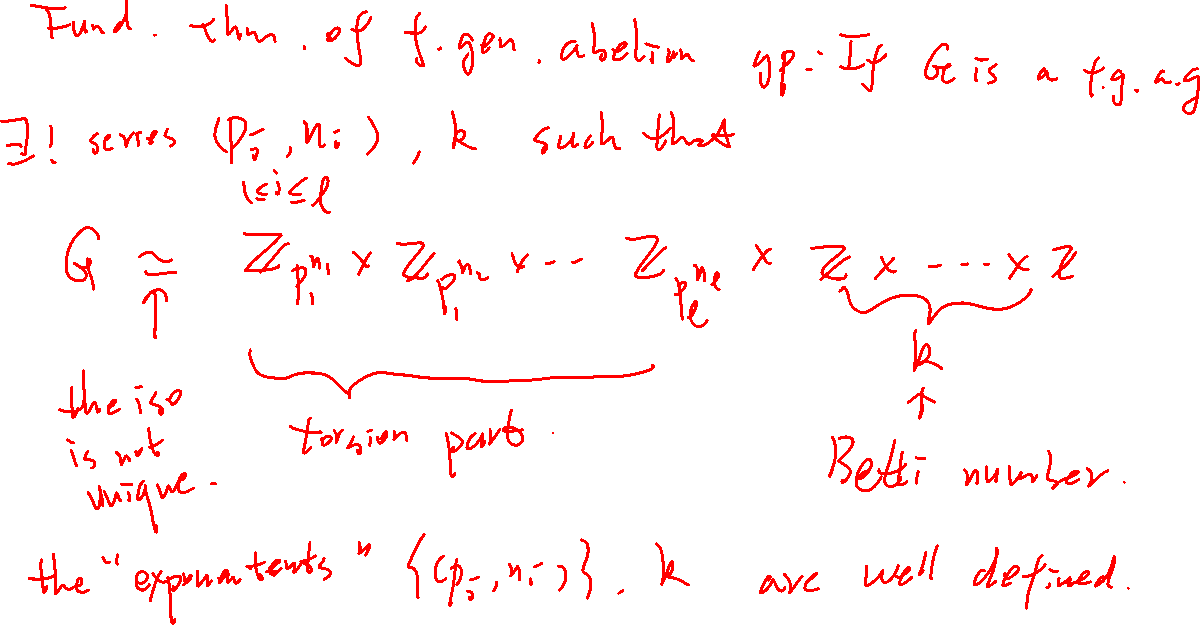 Fund. thm. of f.gen. abelian gp. If G is a f.g. a.g
∃! series (p_i, n_i), k such that
1≤i≤l
G ≃ ℤ_{p_1^{n_1}} × ℤ_{p_1^{n_2}} × ··· ℤ_{p_l^{n_l}} × ℤ × ---- × ℤ
↑
k
↑
the iso
is not
unique.
torsion part.
Betti number.
the "exponantents" {(p_i, n_i)}, k are well defined.